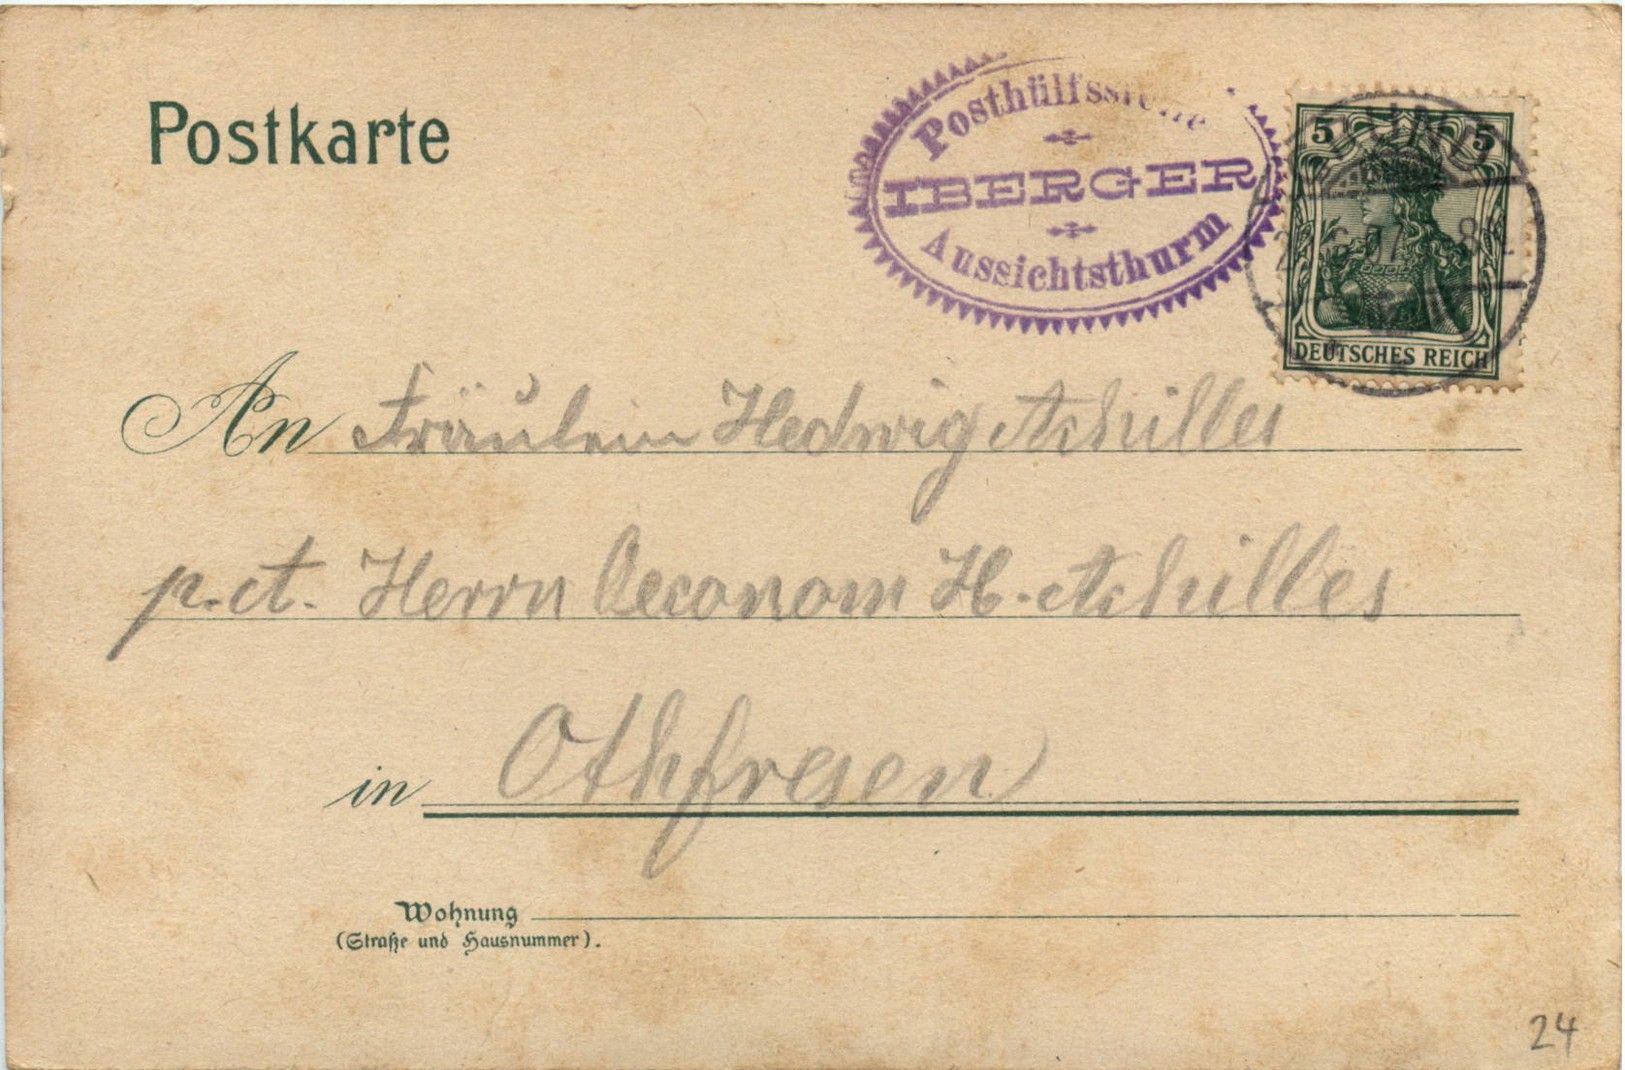 Postkarte
Posthülfsstelle
IBERGER
Aussichtsthurm
5 5
GRUND
DEUTSCHES REICH
An Fräulein Hedwig Achilles
p. ad. Herrn Oeconom H. Achilles
in Othfresen
Wohnung
(Straße und Hausnummer).
24